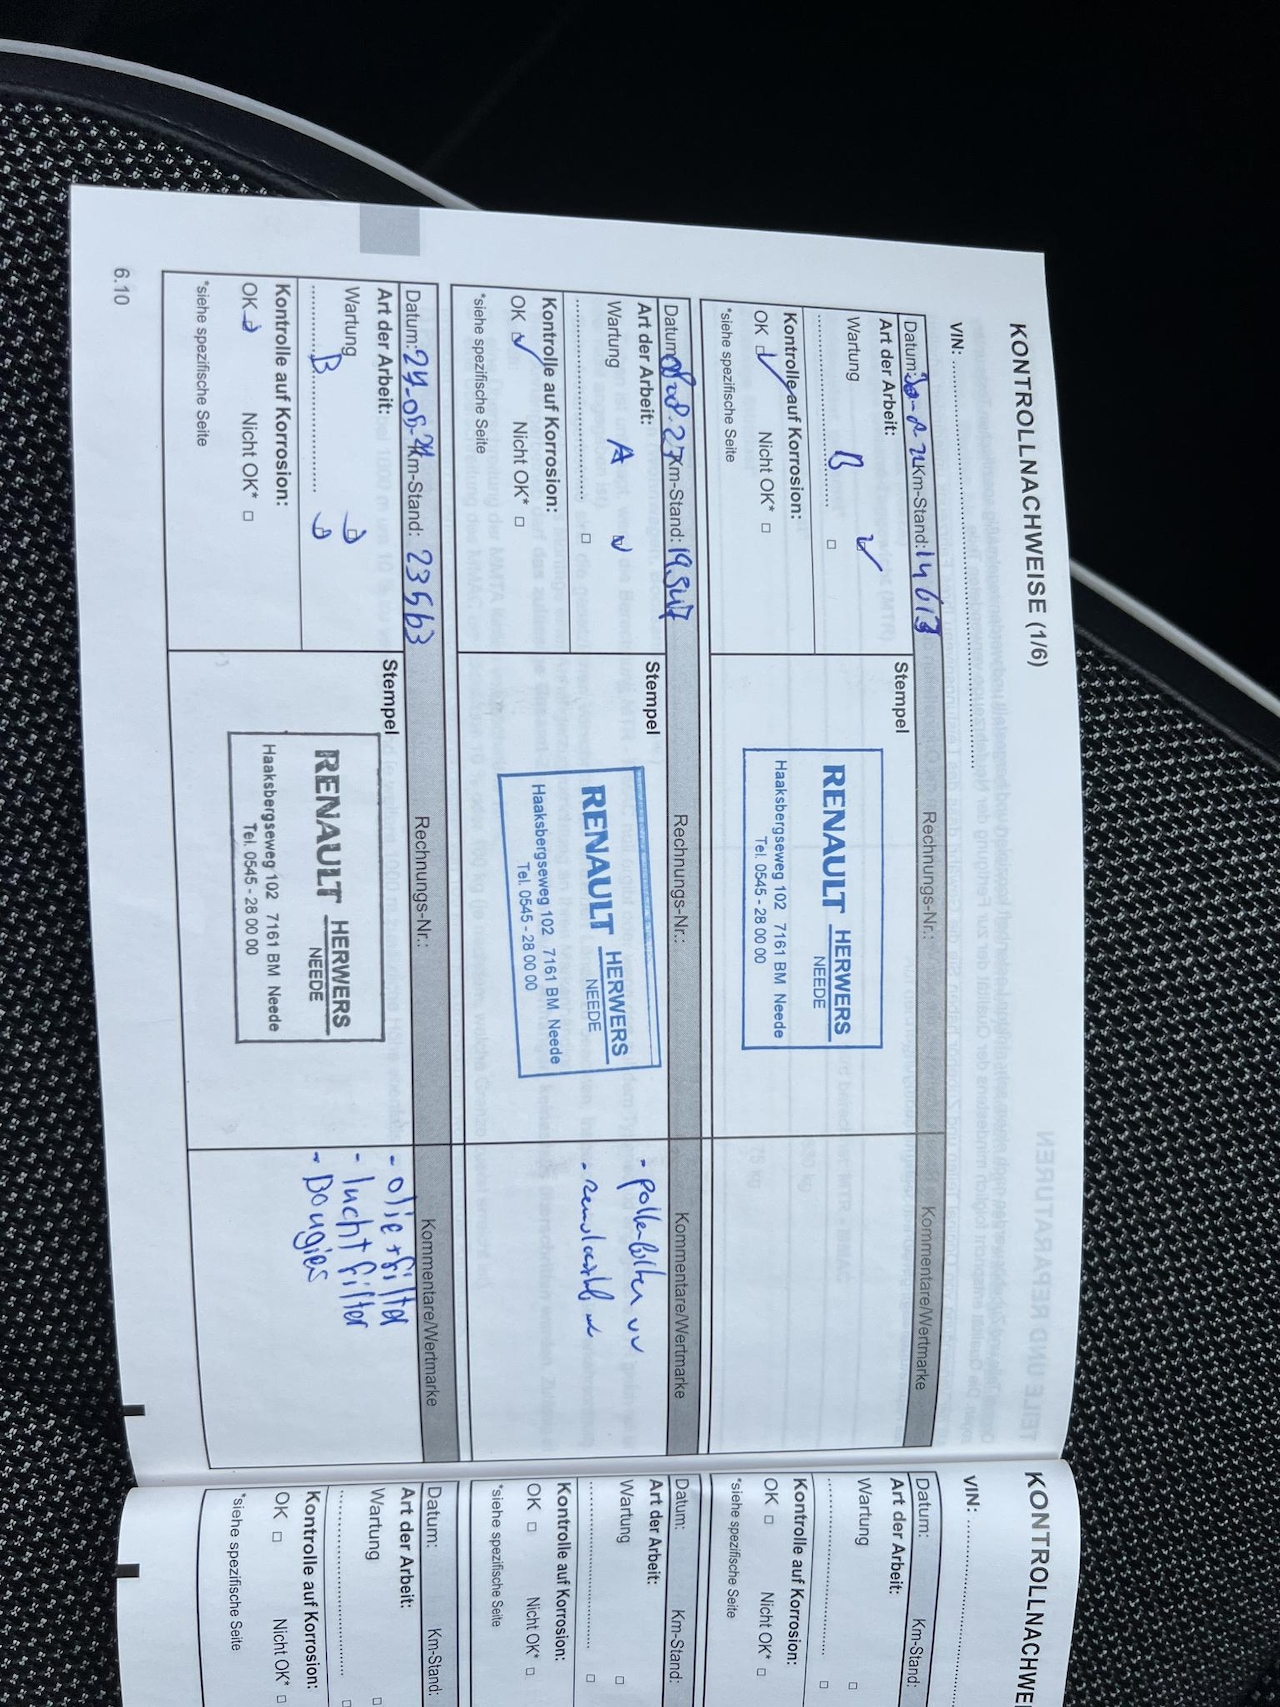 KONTROLLNACHWEISE (1/6)
VIN:
Datum: Km-Stand: Rechnungs-Nr.: Kommentare/Wertmarke
Art der Arbeit: Stempel
Wartung
B
Kontrolle auf Korrosion:
OK Nicht OK*
*siehe spezifische Seite
RENAULT HERWERS
NEEDE
Haaksbergseweg 102 7161 BM Neede
Tel. 0545 - 28 00 00
Datum: Km-Stand: 19547 Rechnungs-Nr.: Kommentare/Wertmarke
Art der Arbeit: Stempel
Wartung A
Kontrolle auf Korrosion:
OK Nicht OK*
*siehe spezifische Seite
RENAULT HERWERS
NEEDE
Haaksbergseweg 102 7161 BM Neede
Tel. 0545 - 28 00 00
- pollenfilter vv
Datum: Km-Stand: 23563 Rechnungs-Nr.: Kommentare/Wertmarke
Art der Arbeit: Stempel
Wartung
B
Kontrolle auf Korrosion:
OK Nicht OK*
*siehe spezifische Seite
RENAULT HERWERS
NEEDE
Haaksbergseweg 102 7161 BM Neede
Tel. 0545 - 28 00 00
- olie + filter
- lucht filter
- Bougies
6.10
KONTROLLNACHWEI
VIN:
Datum: Km-Stand:
Art der Arbeit:
Wartung
Kontrolle auf Korrosion:
OK Nicht OK*
*siehe spezifische Seite
Datum: Km-Stand:
Art der Arbeit:
Wartung
Kontrolle auf Korrosion:
OK Nicht OK*
*siehe spezifische Seite
Datum: Km-Stand:
Art der Arbeit:
Wartung
Kontrolle auf Korrosion:
OK Nicht OK*
*siehe spezifische Seite
TEILE UND REPARATUREN